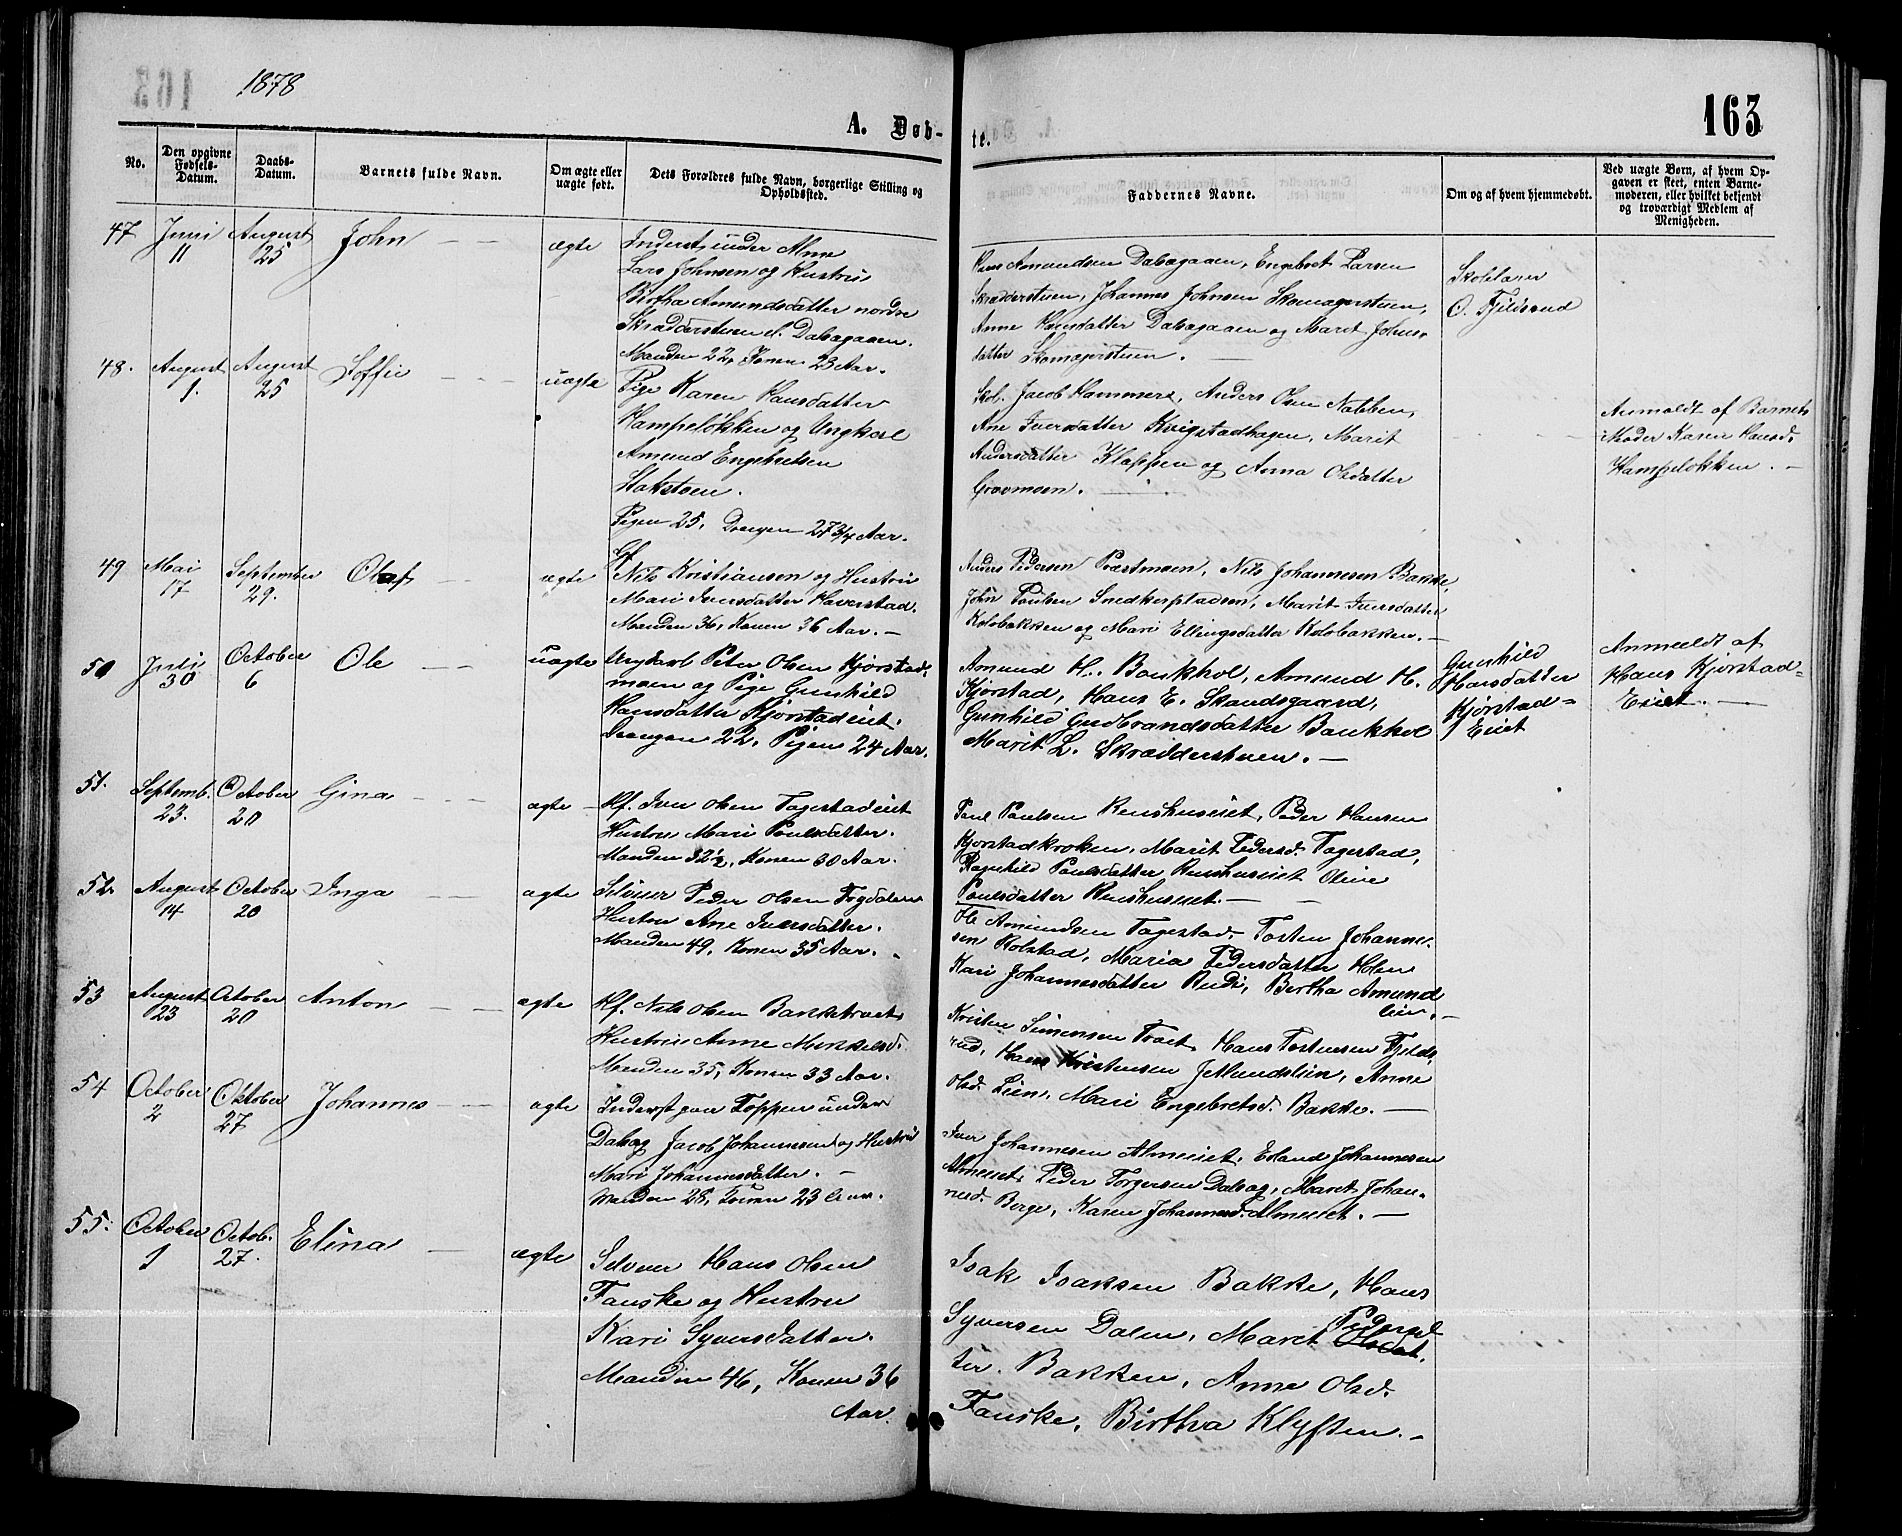 1878
163
A. Døb-
te.
No.
Den opgivne Fødsels-Datum.
Daabs-Datum.
Barnets fulde Navn.
Om ægte eller uægte født.
Dets Forældres fulde Navn, borgerlige Stilling og Opholdssted.
Faddernes Navne.
Om og af hvem hjemmedøbt.
Ved uægte Børn, af hvem Opgaven er skeet, enten Barnemoderen, eller hvilket bekjendt og troværdigt Medlem af Menigheden.
47 Juni 11 August 25 John ægte
Inderst under Alme
Lars Johnsen og Hustru
Birtha Amundsdatter nordre
Skrædderstuen u. Dalsgaaen.
Manden 22, Konen 23 Aar.
Hans Amundsen Dalsgaaen, Engebret Larsen
Skrædderstuen, Johannes Johnsen Skomagerstuen,
Anne Hansdatter Dalsgaaen og Marit Johns-
datter Skomagerstuen.
Skolelærer
O. Fjeldsend
48. August 1. August 25 Soffie uægte
Pige Karen Hansdatter
Hampeløkken og Ungkarl
Amund Engebretsen
Stakstøen.
Pigen 25, Drengen 27 3/4 Aar.
Skol. Jacob Hammers, Anders Olsen Nabben,
Ane Iversdatter Kvigstadhagen, Marit
Andersdatter Klappen og Anna Olsdatter
Gravmoen.
Anmeldt af Barnets
Moder Karen Hansd.
Hampeløkken.
49 Mai 17 September 29. Olaf ægte
Gf. Nils Kristiansen og Hustru
Mari Iversdatter Haverstad.
Manden 36, Konen 36 Aar.
Anders Pedersen Præstmoen, Nils Johannesen Bakke,
John Poulsen Snedkerpladsen, Marit Iversdatter
Kolobakken og Mari Ellingsdatter Kolobakken.
50 Juli 30 October 6 Ole uægte
Ungkarl Peter Olsen Kjørstad-
moen og Pige Gunhild
Hansdatter Kjørstadeiet.
Drengen 22, Pigen 24 Aar.
Amund H. Baukhol, Amund H.
Kjørstad, Hans E. Skandsgaard,
Gunhild Gudbrandsdatter Baukhol
Marit L. Skrædderstuen.
Gunhild
Hansdatter
Kjørstad=
Eiet
Anmeldt af
Hans Kjørstad=
Eiet.
51. Septemb. 23. October 20 Gina ægte
Hf. Iver Olsen Tagestadeiet
Hustru Mari Poulsdatter.
Manden 32 1/2, Konen 30 Aar.
Poul Poulsen Renshuseiet, Peder Hansen
Kjørstadkroken, Marit Pedersd. Tagestad,
Ragnhild Poulsdatter Renshuseiet Oline
Poulsdatter Renshuseiet.
52. August 14 October 20 Inga ægte
Selveier Peder Olsen Fogdalen
Hustru Ane Iversdatter.
Manden 49, Konen 35 Aar.
Ole Amundsen Tagestad. Tosten Johanne-
sen Rolstad, Maria Pedersdatter Holen
Kari Johannesdatter Rudi, Bertha Amund
lien.
53 August 23 October 20 Anton ægte
Hf. Nils Olsen Bakketræet
Hustru Anne Mikkelsd.
Manden 35, Konen 33 Aar.
Kristen Simensen Træet, Hans Tostensen Fjelds-
rud, Hans Kristensen Jetlundslien, Anne
Olsd. Lien, Mari Engebretsd. Bakke.
54 October 2 Oktober 27 Johannes ægte
Inderst paa Toppen under
Dalsøg Jacob Johannesen og Hustru
Mari Johannesdatter.
Manden 28, Konen 23 Aar.
Iver Johannesen Almeeiet. Erland Johannesen
Almeeiet, Peder Torgersen Dalsøg, Marit Johan-
nesd. Berge, Karen Johannesd. Almeeiet.
55. October 1 Octob. 27. Elina ægte
Selveier Hans Olsen
Fauske og Hustru
Kari Syversdatter.
Manden 46, Konen 36
Aar.
Isak Isaksen Bakke, Hans
Syversen Dalen, Marit Pedersdat
ter. Bakken, Anne Olsd.
Fauske, Birtha Klyften.